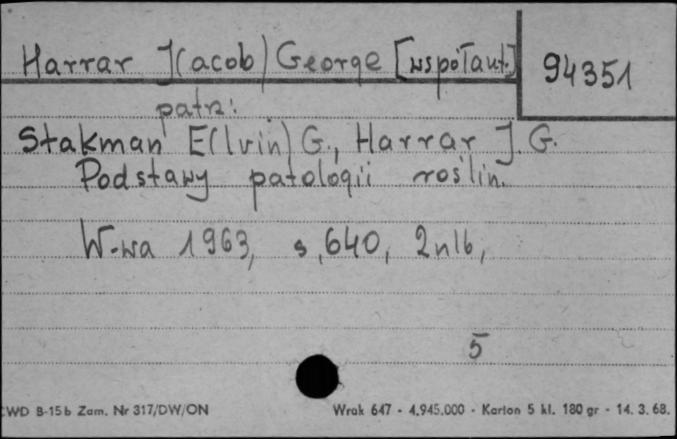 Harrar J(acob) George [współaut.]
94351
patrz:
Stakman E(lvin) G., Harrar J. G.
Podstawy patologii roślin.
W-wa 1963, s, 640, 2nlb,
5
CWD B-15b Zam. Nr 317/DW/ON
Wrak 647 - 4.945.000 - Karton 5 kl. 180 gr - 14. 3. 68.